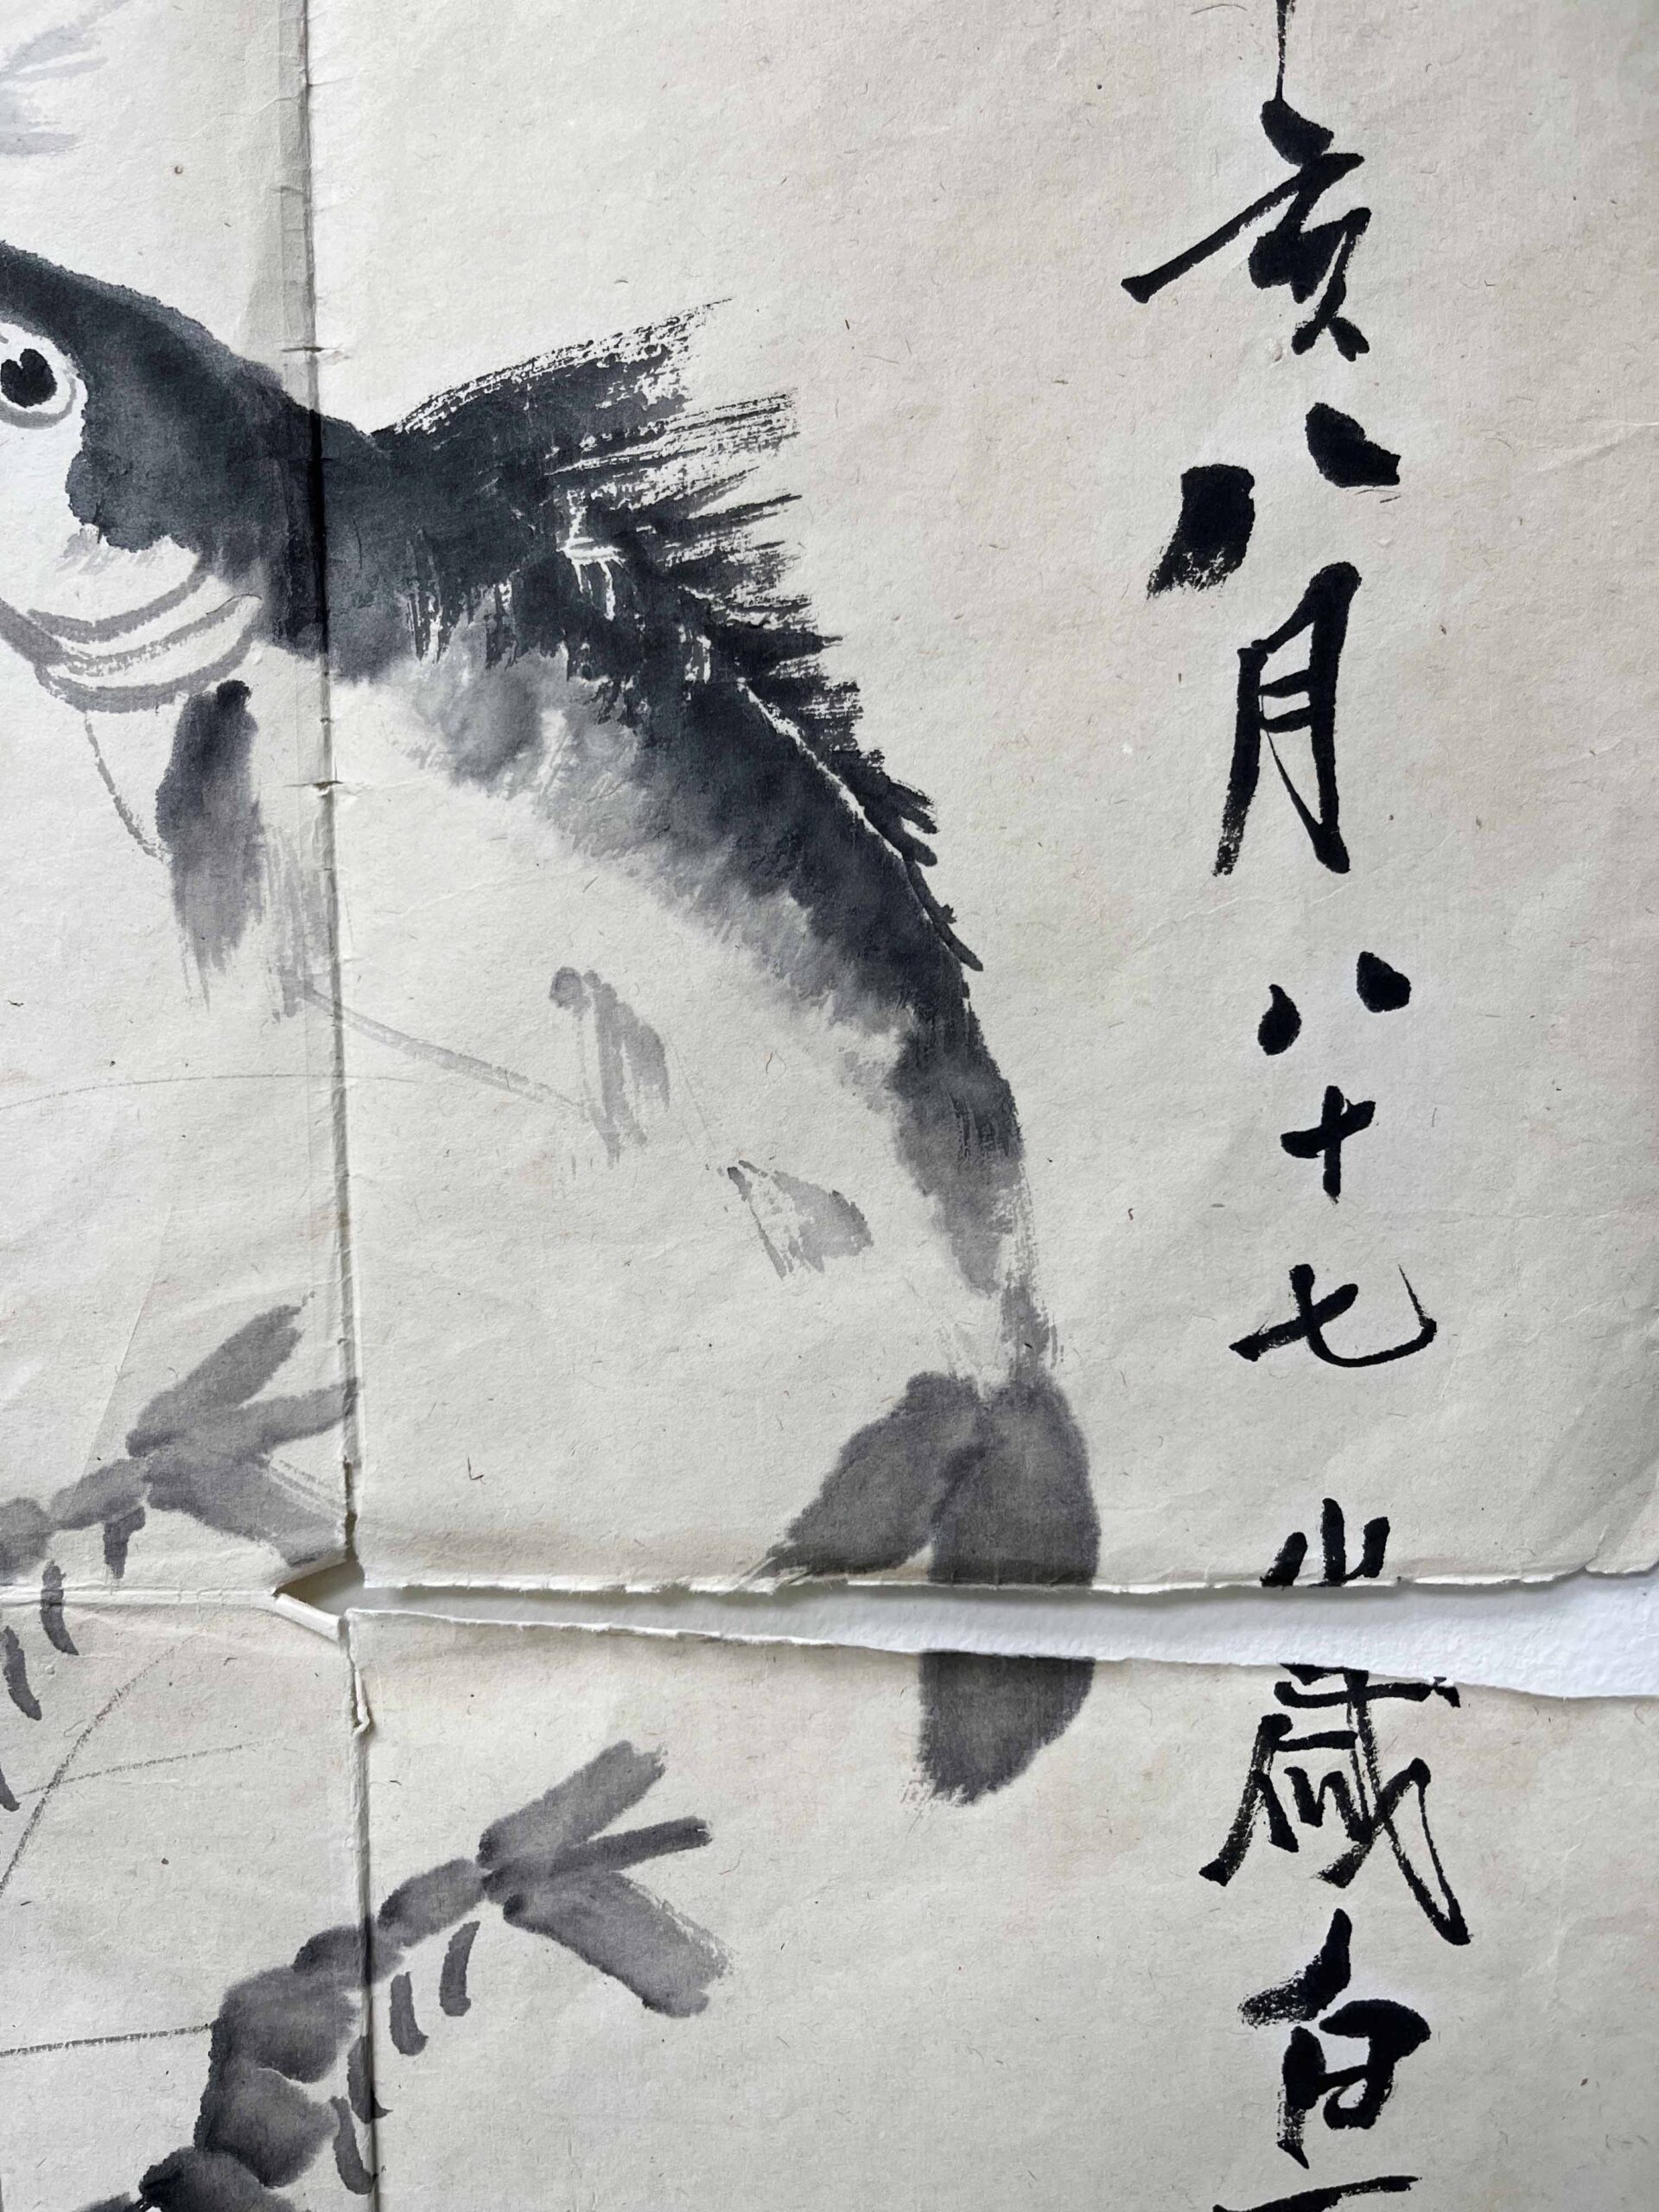 亥八月八十七歲白